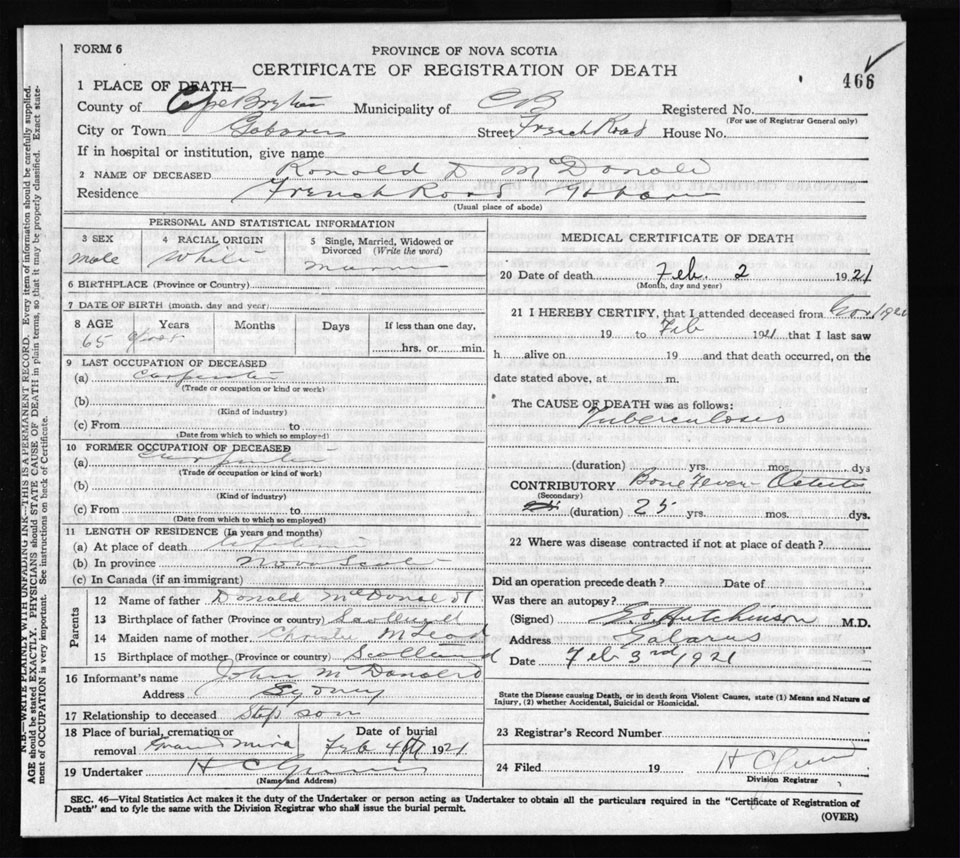 FORM 6
PROVINCE OF NOVA SCOTIA
CERTIFICATE OF REGISTRATION OF DEATH
466
1 PLACE OF DEATH—
County of Cape Breton Municipality of CB Registered No.
(For use of Registrar General only)
City or Town Gabarus Street French Road House No.
If in hospital or institution, give name
2 NAME OF DECEASED Ronald D McDonald
Residence French Road Gabarus
(Usual place of abode)
PERSONAL AND STATISTICAL INFORMATION
3 SEX 4 RACIAL ORIGIN 5 Single, Married, Widowed or Divorced (Write the word)
Male White
6 BIRTHPLACE (Province or Country)
7 DATE OF BIRTH (month, day and year)
8 AGE Years Months Days If less than one day,
65 hrs. or min.
9 LAST OCCUPATION OF DECEASED
(a) Carpenter
(Trade or occupation or kind of work)
(b)
(Kind of industry)
(c) From to
(Date from which to which so employed)
10 FORMER OCCUPATION OF DECEASED
(a) Carpenter
(Trade or occupation or kind of work)
(b)
(Kind of industry)
(c) From to
(Date from which to which so employed)
11 LENGTH OF RESIDENCE (In years and months)
(a) At place of death
(b) In province Nova Scotia
(c) In Canada (if an immigrant)
Parents
12 Name of father Donald McDonald
13 Birthplace of father (Province or country) Scotland
14 Maiden name of mother Christie McLeod
15 Birthplace of mother (Province or country) Scotland
16 Informant's name John McDonald
Address Sydney
17 Relationship to deceased Step son
18 Place of burial, cremation or removal Grand Mira
Date of burial
Feb 4th 1921
19 Undertaker H C
(Name and Address)
MEDICAL CERTIFICATE OF DEATH
20 Date of death Feb. 2 1921
(Month, day and year)
21 I HEREBY CERTIFY, that I attended deceased from Nov 1920
19 to Feb 1921 that I last saw
h alive on 19 and that death occurred, on the
date stated above, at m.
The CAUSE OF DEATH was as follows:
Tuberculosis
(duration) yrs. mos. dys
CONTRIBUTORY Bone Fever
(Secondary)
(duration) 25 yrs. mos. dys.
22 Where was disease contracted if not at place of death?
Did an operation precede death? Date of
Was there an autopsy?
(Signed) Hutchinson M.D.
Address Gabarus
Date Feb 3rd 1921
State the Disease causing Death, or in death from Violent Causes, state (1) Means and Nature of
Injury, (2) whether Accidental, Suicidal or Homicidal.
23 Registrar's Record Number
24 Filed 19 H C
Division Registrar
SEC. 46—Vital Statistics Act makes it the duty of the Undertaker or person acting as Undertaker to obtain all the particulars required in the "Certificate of Registration of
Death" and to fyle the same with the Division Registrar who shall issue the burial permit.
(OVER)
N.B.—WRITE PLAINLY WITH UNFADING INK—THIS IS A PERMANENT RECORD. Every item of information should be carefully supplied.
AGE should be stated EXACTLY. PHYSICIANS should STATE CAUSE OF DEATH in plain terms, so that it may be properly classified. Exact state-
ment of OCCUPATION is very important. See instructions on back of Certificate.